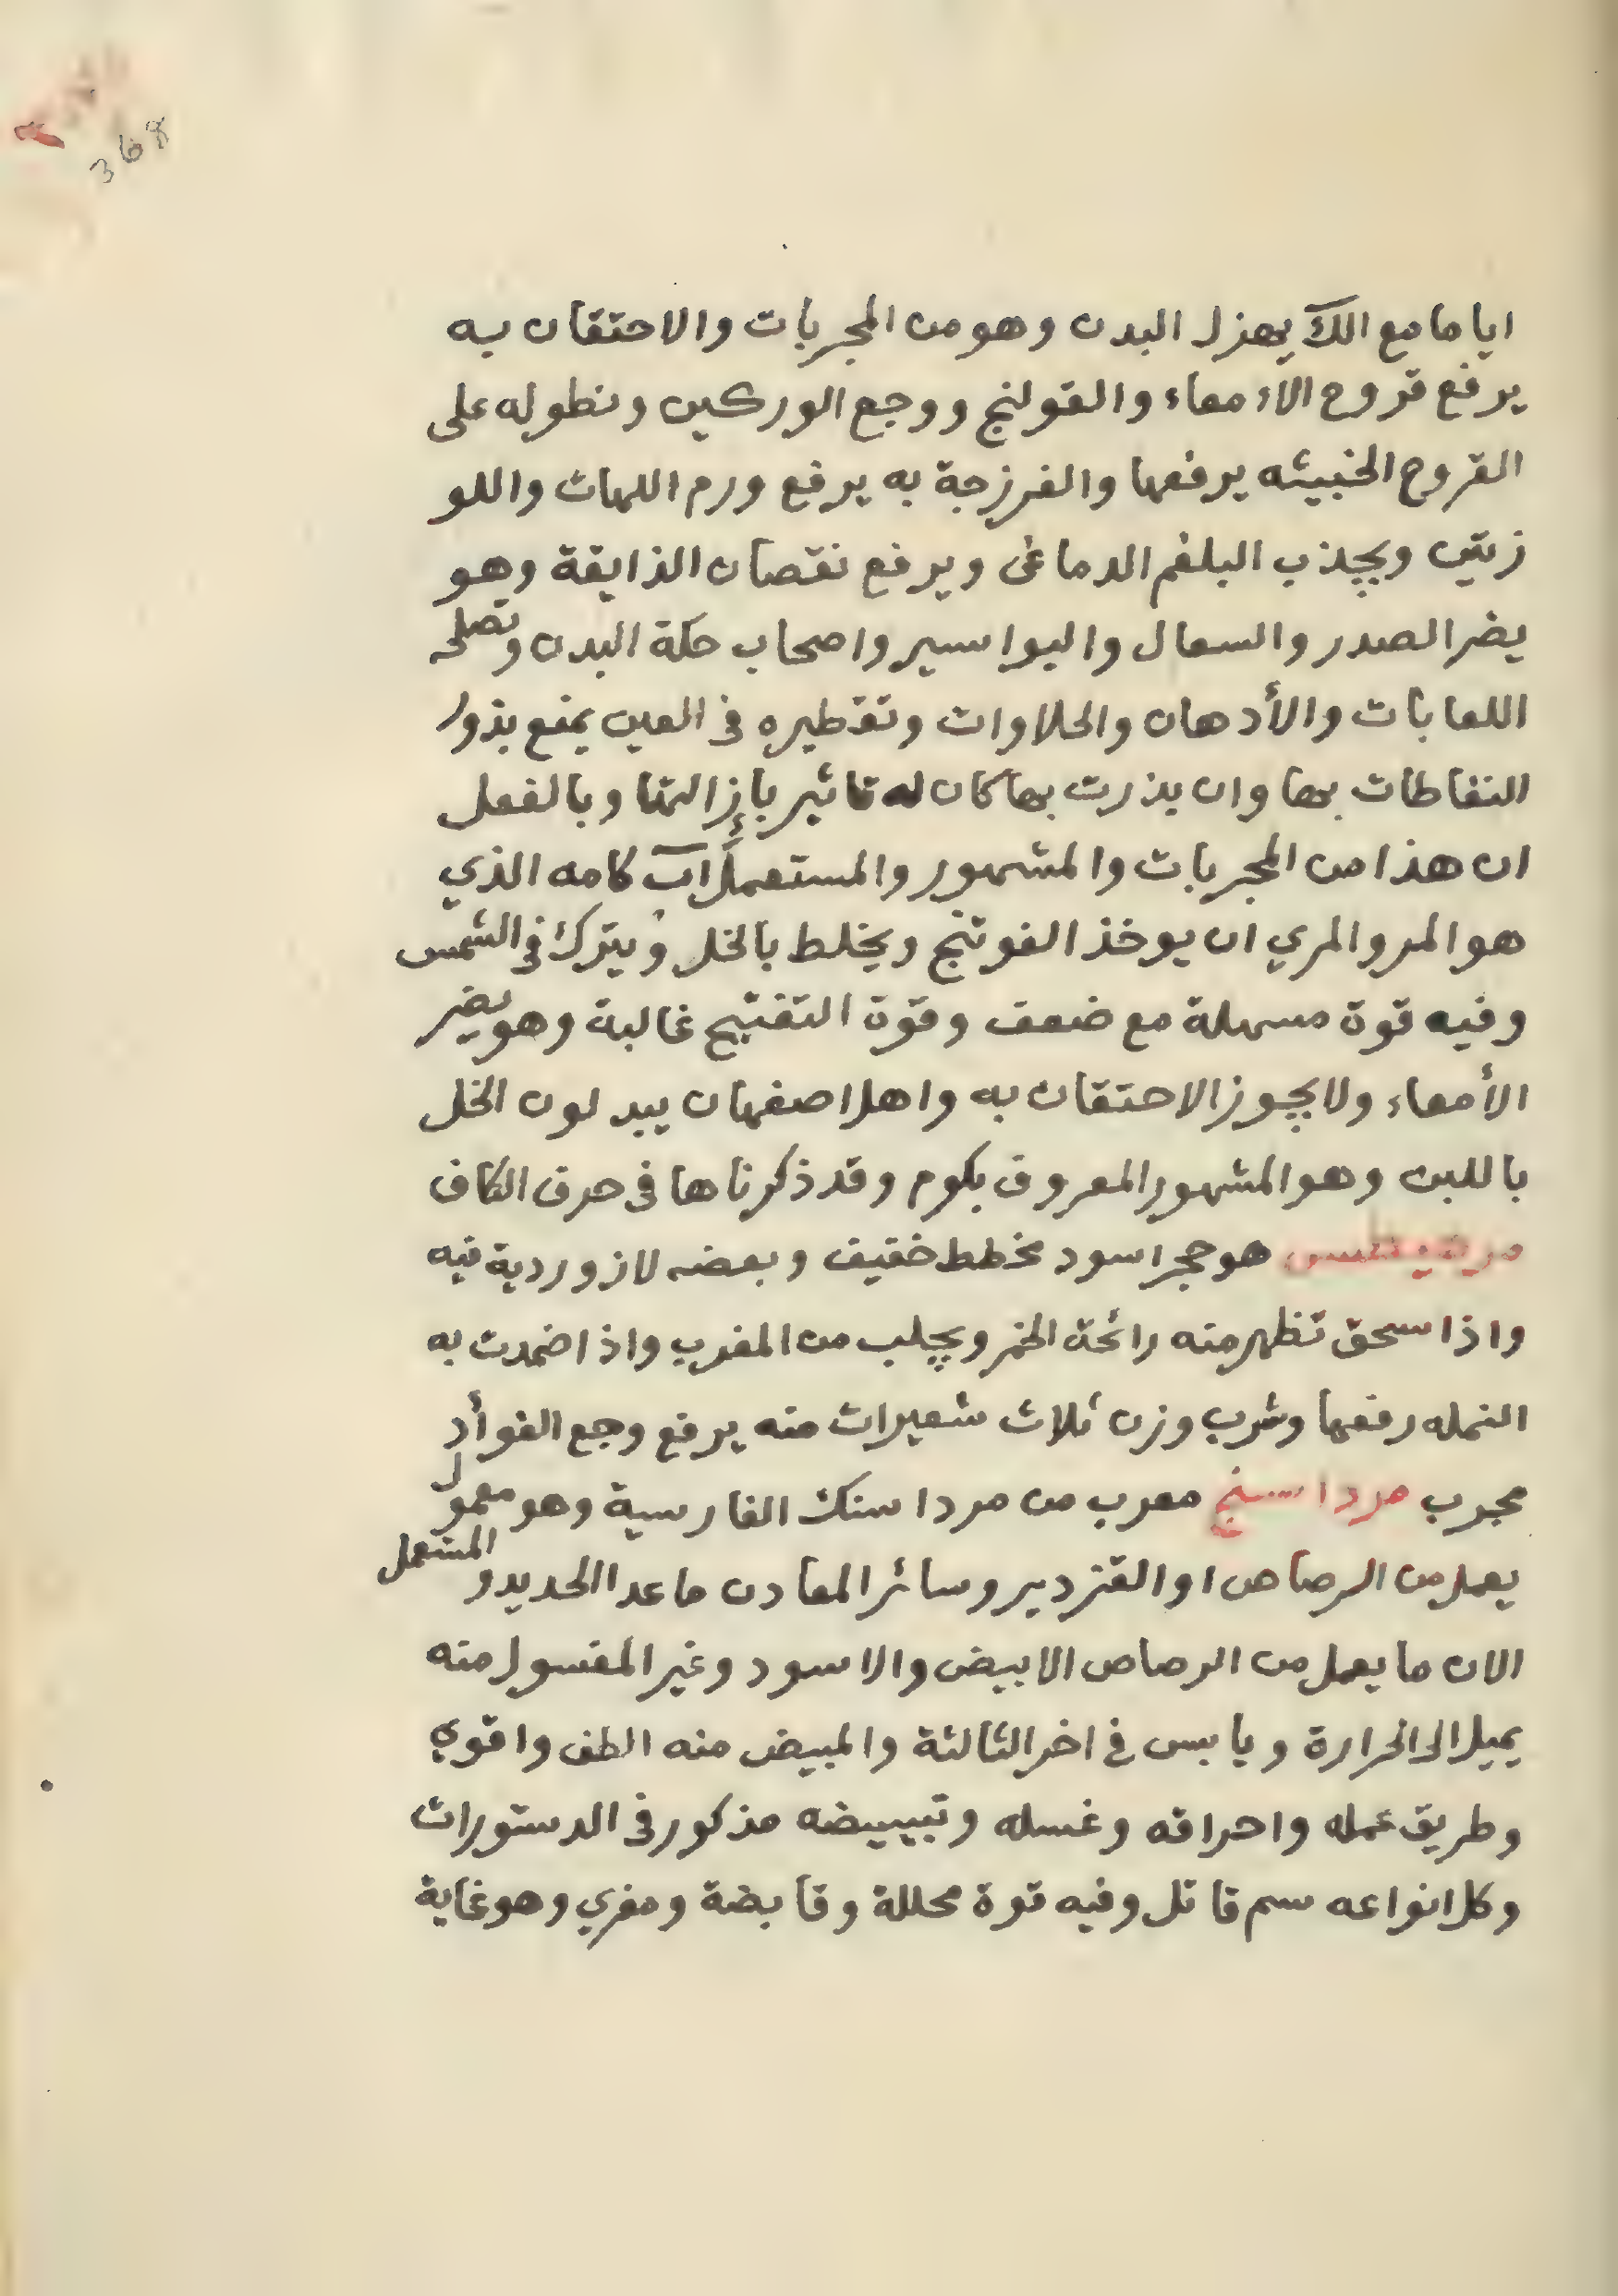 368
اياما مع اللك يهزل البدن وهو من المجربات والاحتقان به
يرفع قروح الاءمعاء والقولنج ووجع الوركين ونطوله على
القروح الخبيثه يرفعها والفرزجة به يرفع ورم اللهات واللو
زتين ويجذب البلغم الدماغى ويرفع نقصان الذايقة وهو
يضر الصدر والسعال والبواسير واصحاب حكة البدن وتصلحه
اللعابات والأدهان والحلاوات وتقطيره فى العين يمنع بذور
النفاطات بها وان بذرت بها كان له تاثير بإزالتها وبالفعل
ان هذا من المجربات والمشهور والمستعمل آب كامه الذي
هو المر والمري ان يوخذ الفوتنج ويخلط بالخل ويترك فى الشمس
وفيه قوة مسهلة مع ضعف وقوة التفتيح غالبة وهو يضر
الأمعاء ولا يجوز الاحتقان به واهل اصفهان يبدلون الخل
باللبن وهو المشهور المعروف بكوم وقد ذكرناها فى حرف الكاف
هو حجر اسود مخطط خفيف وبعضه لازوردية فيه
واذا سحق تظهر منه رائحة الخمر ويجلب من المغرب واذا ضمدت به
النمله رفعها وشرب وزن ثلاث شعيرات منه يرفع وجع الفوأد
مجرب مرداسنج معرب من مرداسنك الفارسية وهو معمول
يعمل من الرصاص او القزدير وسائر المعادن ماعدا الحديد والمستعمل
الان ما يعمل من الرصاص الابيض والاسود وغير المغسول منه
يميل الى الحرارة ويابس فى اخر الثالثة والمبيض منه الطف واقوي
وطريق عمله واحراقه وغسله وتبييضه مذكور فى الدستورات
وكل انواعه سم قاتل وفيه قوة محللة وقابضة ومغري وهو غاية